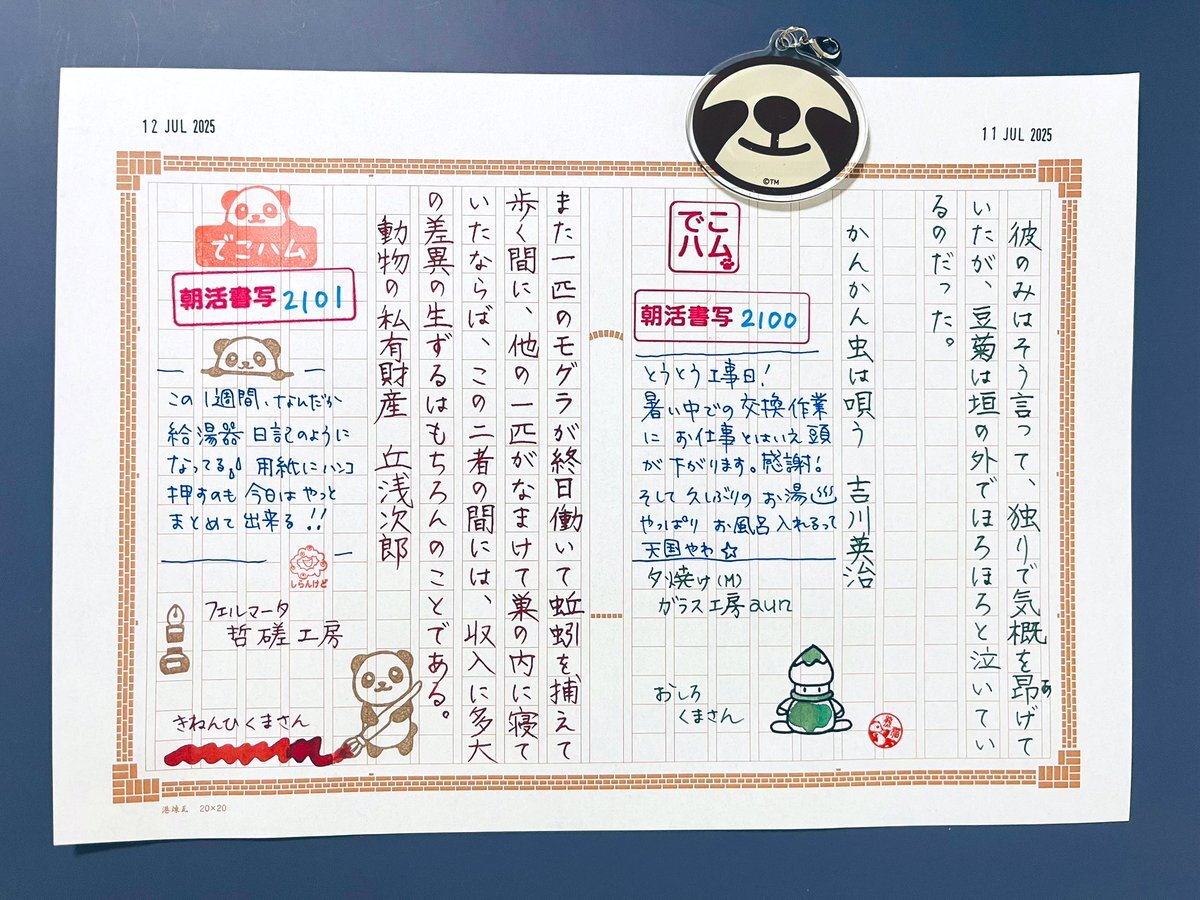 11 JUL 2025
彼のみはそう言って、独りで気概を昂げて
あ
いたが、豆菊は垣の外でほろほろと泣いてい
るのだった。
かんかん虫は唄う 吉川英治
でこ
ハム
朝活書写 2100
とうとう工事日!
暑い中での交換作業
に お仕事とはいえ頭
が下がります。感謝!
そして久しぶりの お湯♨
やっぱり お風呂入れるって
天国やわ☆
夕焼け(M)
ガラス工房aun
おしろ
くまさん
©TM
12 JUL 2025
また一匹のモグラが終日働いて蚯蚓を捕えて
歩く間に、他の一匹がなまけて巣の内に寝て
いたならば、この二者の間には、収入に多大
の差異の生ずるはもちろんのことである。
動物の私有財産 丘浅次郎
でこハム
朝活書写 2101
この1週間、なんだか
給湯器 日記のように
なってる 用紙にハンコ
押すのも今日は やっと
まとめて 出来る!!
しらんけど
フェルマータ
哲磋工房
きねんひくまさん
港煉瓦 20×20